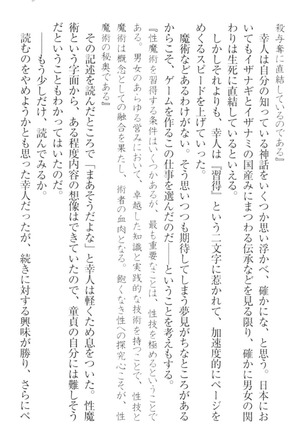 殺与奪に直結しているのである』
　幸人は自分の知っている神話をいくつか思い浮かべ、確かにな、と思う。日本にお
いてもイザナギとイザナミの国産みにまつわる伝承などを見る限り、確かに男女の関
わりは生死に直結しているといえる。
　しかしそれよりも、幸人は『習得』という二文字に惹かれて、加速度的にページを
めくるスピードを上げていった。
　魔術などあるわけがない。そう思いつつも期待してしまう夢見がちなところがある
からこそ、ゲームを作るこの仕事を選んだのだ――ということを考えもする。
『性魔術を習得する条件はいくつかあるが、最も重要なことは、性技を極めるということで
ある。男女のあらゆる営みにおいて、卓越した知識と実践的な技術を持つことで、性技と
魔術は概念としての融合を果たし、術者の血肉となる。飽くなき性への探究心こそが、性
魔術の秘奥である』
　その記述を読んだところで「まあそうだよな」と幸人は軽くため息をついた。性魔
術という字面から、ある程度内容の想像はできていたが、童貞の自分には難しそう
だということもわかってはいたのだ。
　――もう少しだけ、読んでみるか。
　読むのをやめようかとも思った幸人だったが、続きに対する興味が勝り、さらにペ